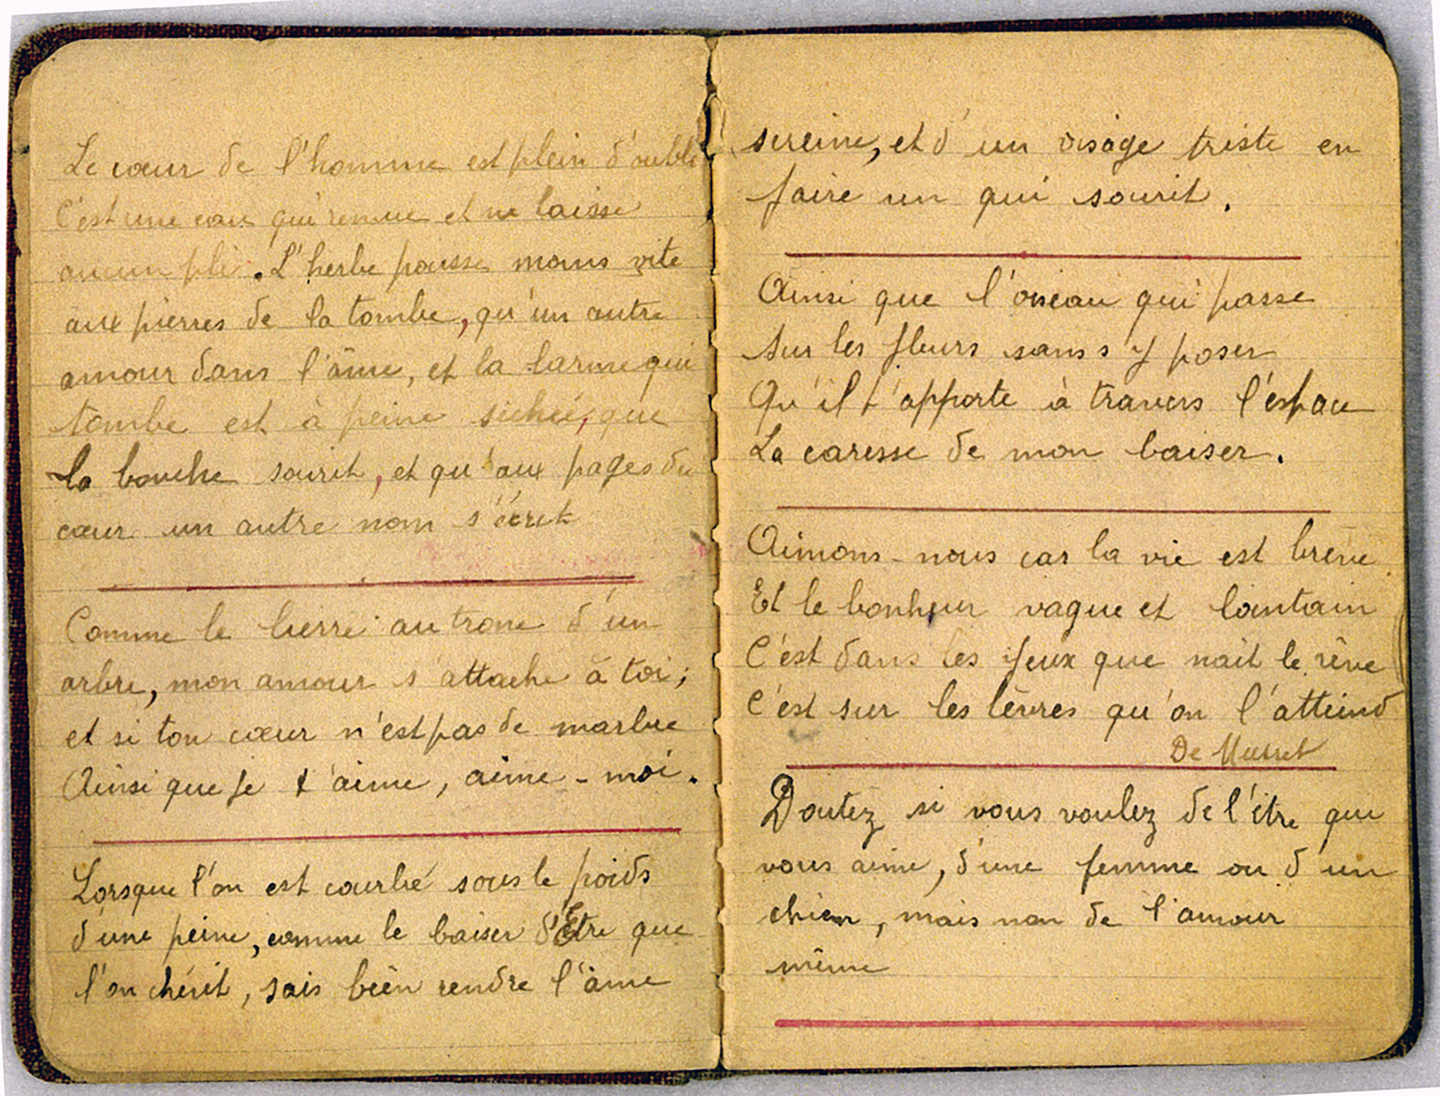 Le cœur de l'homme est plein d'oubli
C'est une eau qui remue et ne laisse
aucun pli. L'herbe pousse moins vite
aux pierres de la tombe, qu'un autre
amour dans l'âme, et la larme qui
tombe est à peine séchée, que
la bouche sourit, et qu'aux pages du
cœur un autre nom s'écrit
Comme le lierre au tronc d'un
arbre, mon amour s'attache à toi;
et si ton cœur n'est pas de marbre
Ainsi que je t'aime, aime-moi.
Lorsque l'on est courbé sous le poids
d'une peine, comme le baiser d'Etre que
l'on chérit, sais bien rendre l'âme
sereine, et d'un visage triste en
faire un qui sourit.
Ainsi que l'oiseau qui passe
Sur les fleurs sans s'y poser
Qu'il t'apporte à travers l'espace
La caresse de mon baiser.
Aimons-nous car la vie est brève
Et le bonheur vague et lointain
C'est dans les yeux que nait le rêve
C'est sur les lèvres qu'on l'atteind
De Musset
Doutez si vous voulez de l'être qui
vous aime, d'une femme ou d'un
chien, mais non de l'amour
même